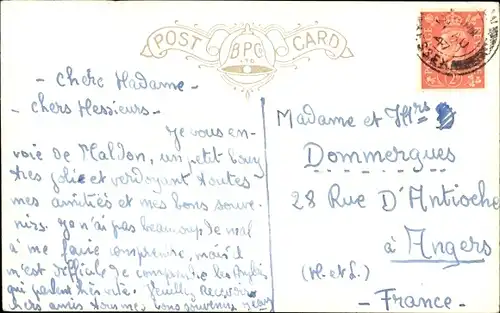 POST CARD
BPC
LTD
- Chère Madame -
- chers Messieurs -
Je vous en-
voie de Maldon, un petit bourg
très jolie et verdoyant toutes
mes amitiés et mes bons souve-
nirs. Je n'ai pas beaucoup de mal
à me faire comprendre, mais il
m'est difficile de comprendre les Anglais
qui parlent très vite. Veuillez Recevoir
chers amis tous mes bons souvenirs Jean
Madame et Mrs
Dommergues
28 Rue D'Antioche
à Angers
(M. et L.)
- France -